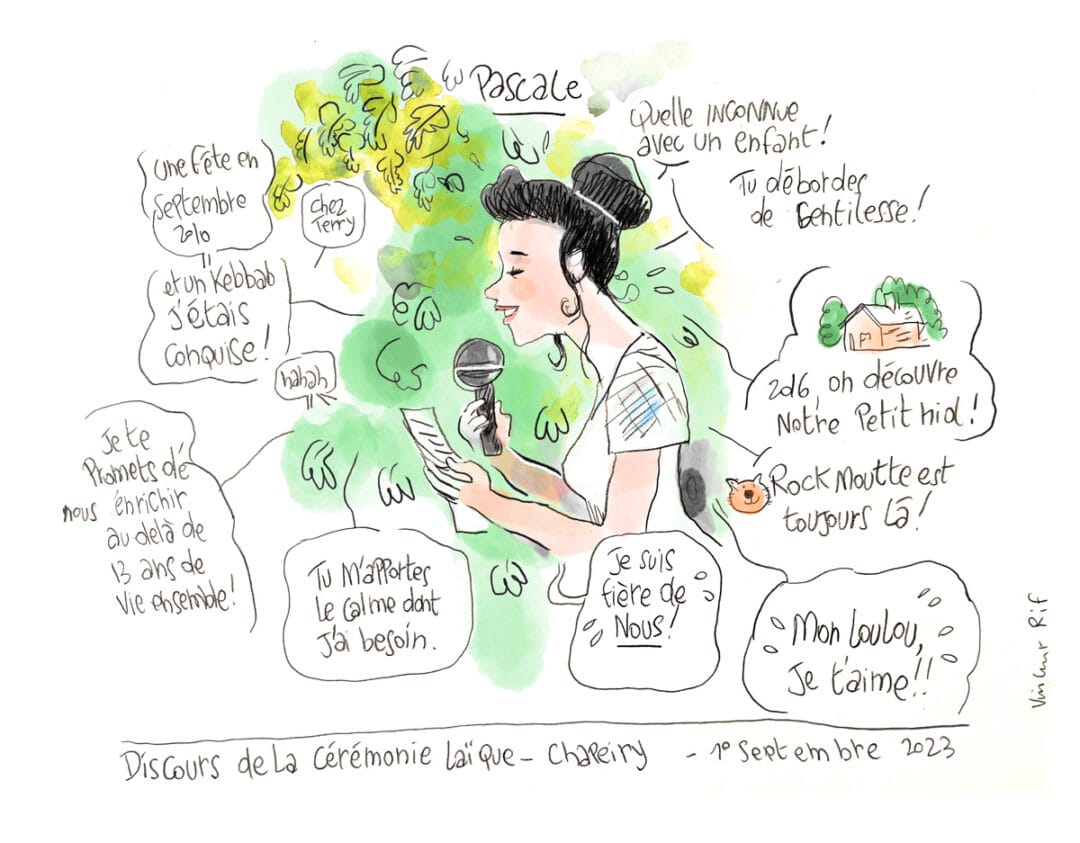 Pascale
Une fête en
Septembre
2010
chez
Terry
et un Kebbab
j'étais
conquise!
hahah
Je te
Promets de
nous enrichir
au delà de
13 ans de
vie ensemble!
Tu m'apportes
le calme dont
j'ai besoin.
Je suis
fière de
Nous!
Quelle INCONNUE
avec un enfant!
Tu débordes
de Gentilesse!
2016, on découvre
Notre Petit nid!
Rock Moutte est
toujours là!
Mon loulou,
Je t'aime!!
Vincent Rif
Discours de la Cérémonie Laïque - Chapeiry - 1º Septembre 2023